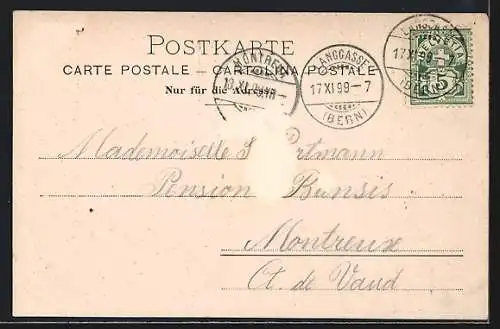 POSTKARTE
CARTE POSTALE – CARTOLINA POSTALE
Nur für die Adresse
MONTREUX
LÄNGGASSE
17 XI 99 – 7
(BERN)
LÄNGGASSE
17 XI 99
(BERN)
HELVETIA
Mademoiselle
Pension
Montreux
Ct. de Vaud